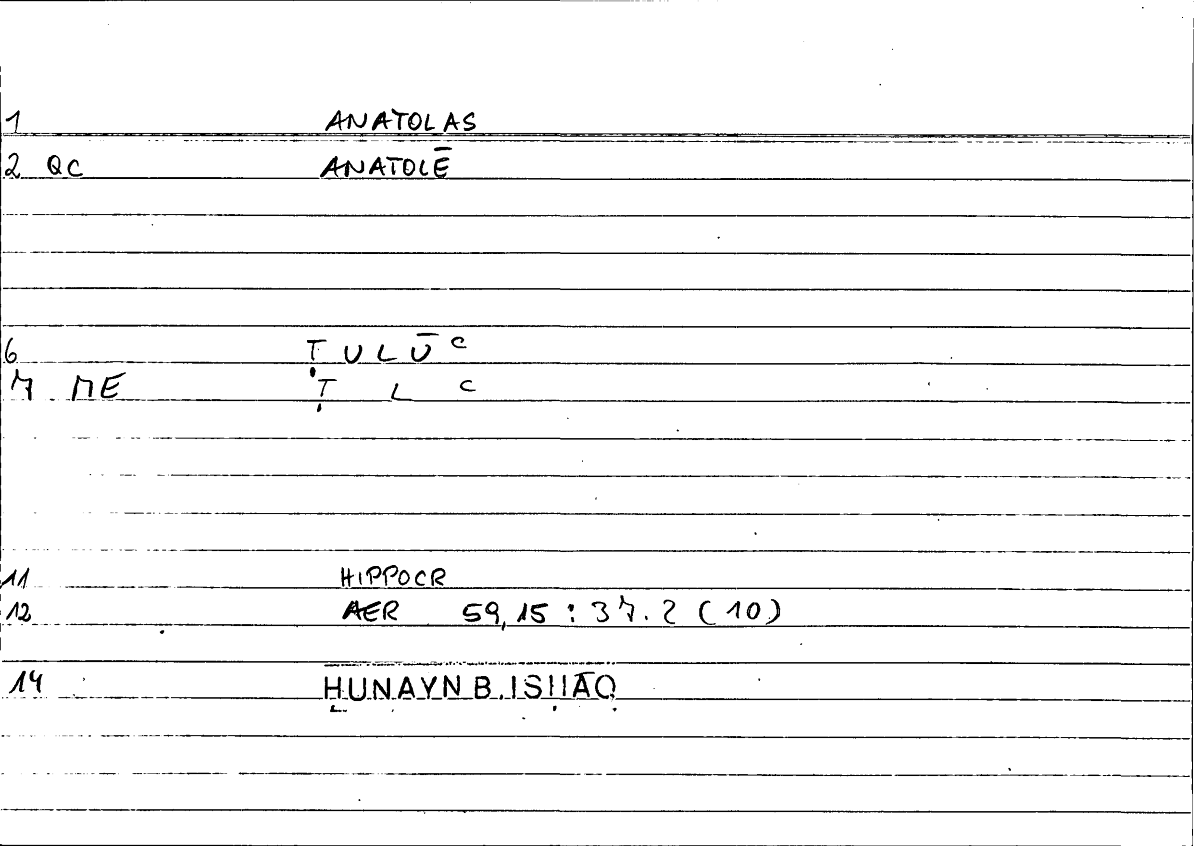 1 ANATOLAS
2 QC ANATOLĒ
6 ṬULŪᶜ
7 ME Ṭ L ᶜ
11 HIPPOCR
12 AER 59,15 : 37.2 (10)
14 ḤUNAYN B. ISḤĀQ